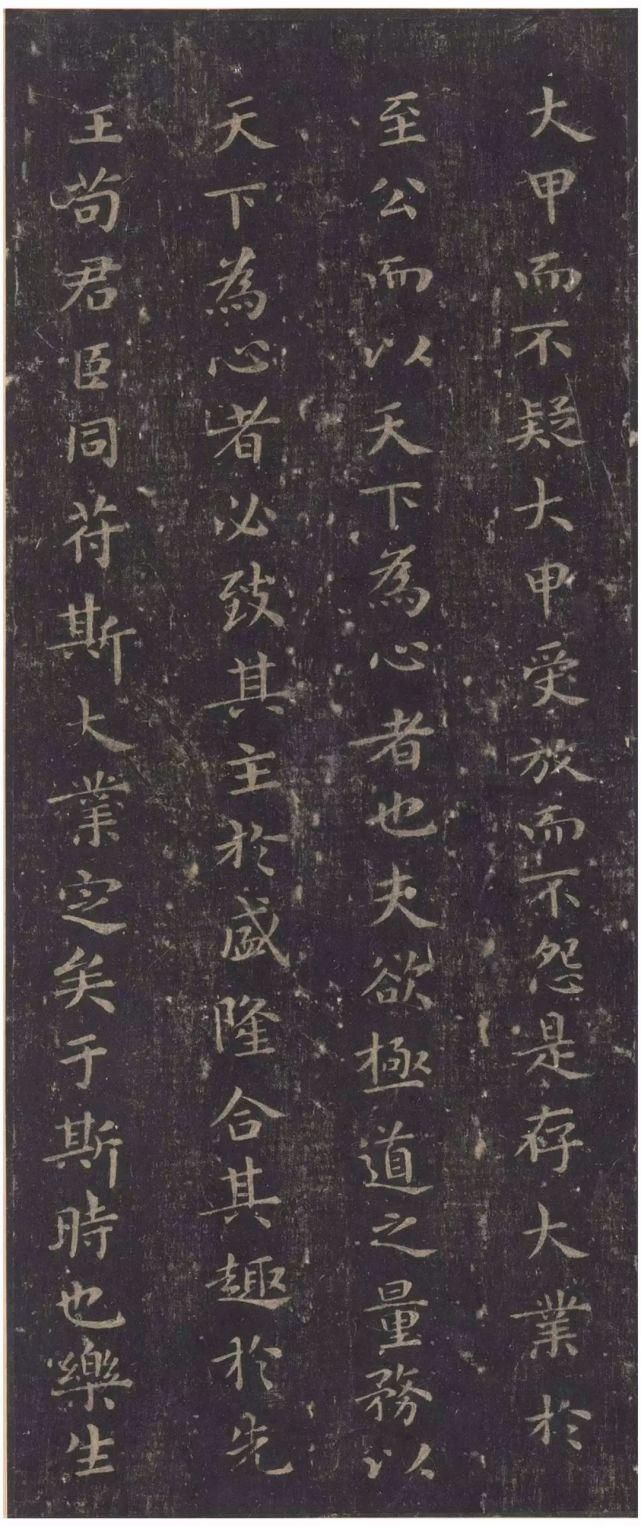 大甲而不疑大甲受放而不怨是存大業於
至公而以天下為心者也夫欲極道之量務以
天下為心者必致其主於盛隆合其趣於先
王苟君臣同符斯大業定矣于斯時也樂生